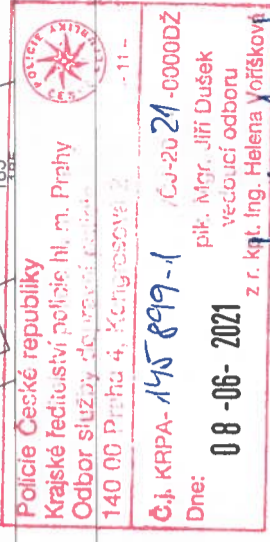 Policie České republiky
Krajské ředitelství policie hl. m. Prahy
Odbor služby dopravní policie
140 00 Praha 4, Kongresová 2
- 11 -
Č.j. KRPA- 145 899-1 /ČJ-2021-0000DŽ
Dne: 08-06-2021
plk. Mgr. Jiří Dušek
vedoucí odboru
z r. kpt. Ing. Helena Voříšková